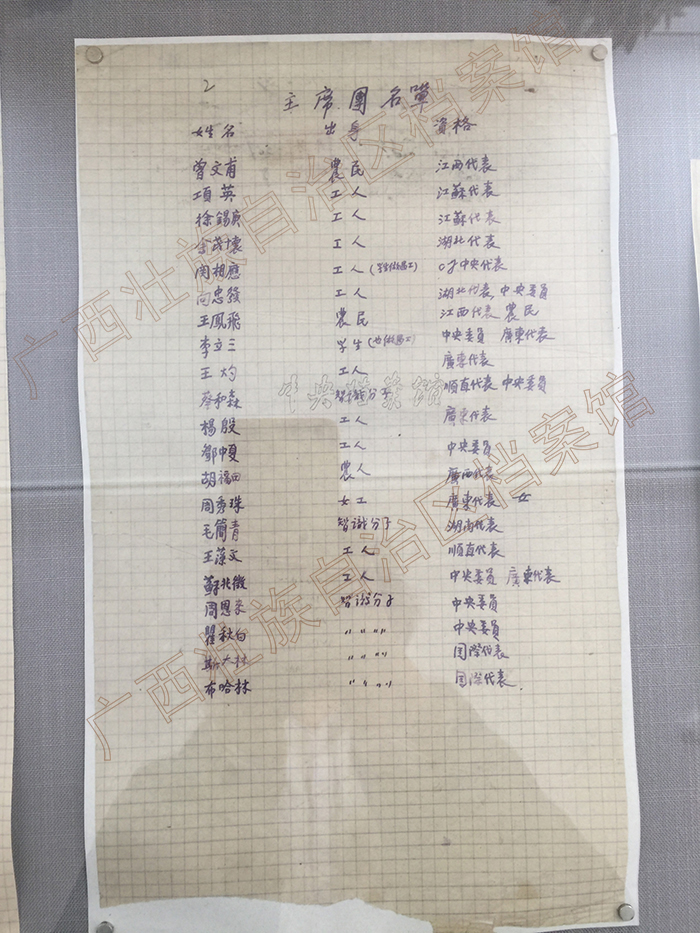 2
主席團名單
姓名 出身 資格
曾文甫 農民 江西代表
項英 工人 江蘇代表
徐錫庚 工人 江蘇代表
余茂懷 工人 湖北代表
関相應 工人 CY中央代表
向忠發 工人 湖北代表 中央委員
王鳳飛 農民 江西代表 農民
李立三 学生 中央委員 廣東代表
王灼 工人 廣東代表
蔡和森 智識分子 順直代表 中央委員
楊殷 工人 廣東代表
鄧中夏 工人 中央委員
胡福田 農人 廣西代表
周秀珠 女工 廣東代表 女
毛簡青 智識分子 湖南代表
王藻文 工人 順直代表
蘇兆徵 工人 中央委員 廣東代表
周恩来 智識分子 中央委員
瞿秋白 〃〃〃〃 中央委員
斯大林 〃〃〃〃 国際代表
布哈林 〃〃〃〃 国際代表
中央档案馆
广西壮族自治区档案馆
广西壮族自治区档案馆